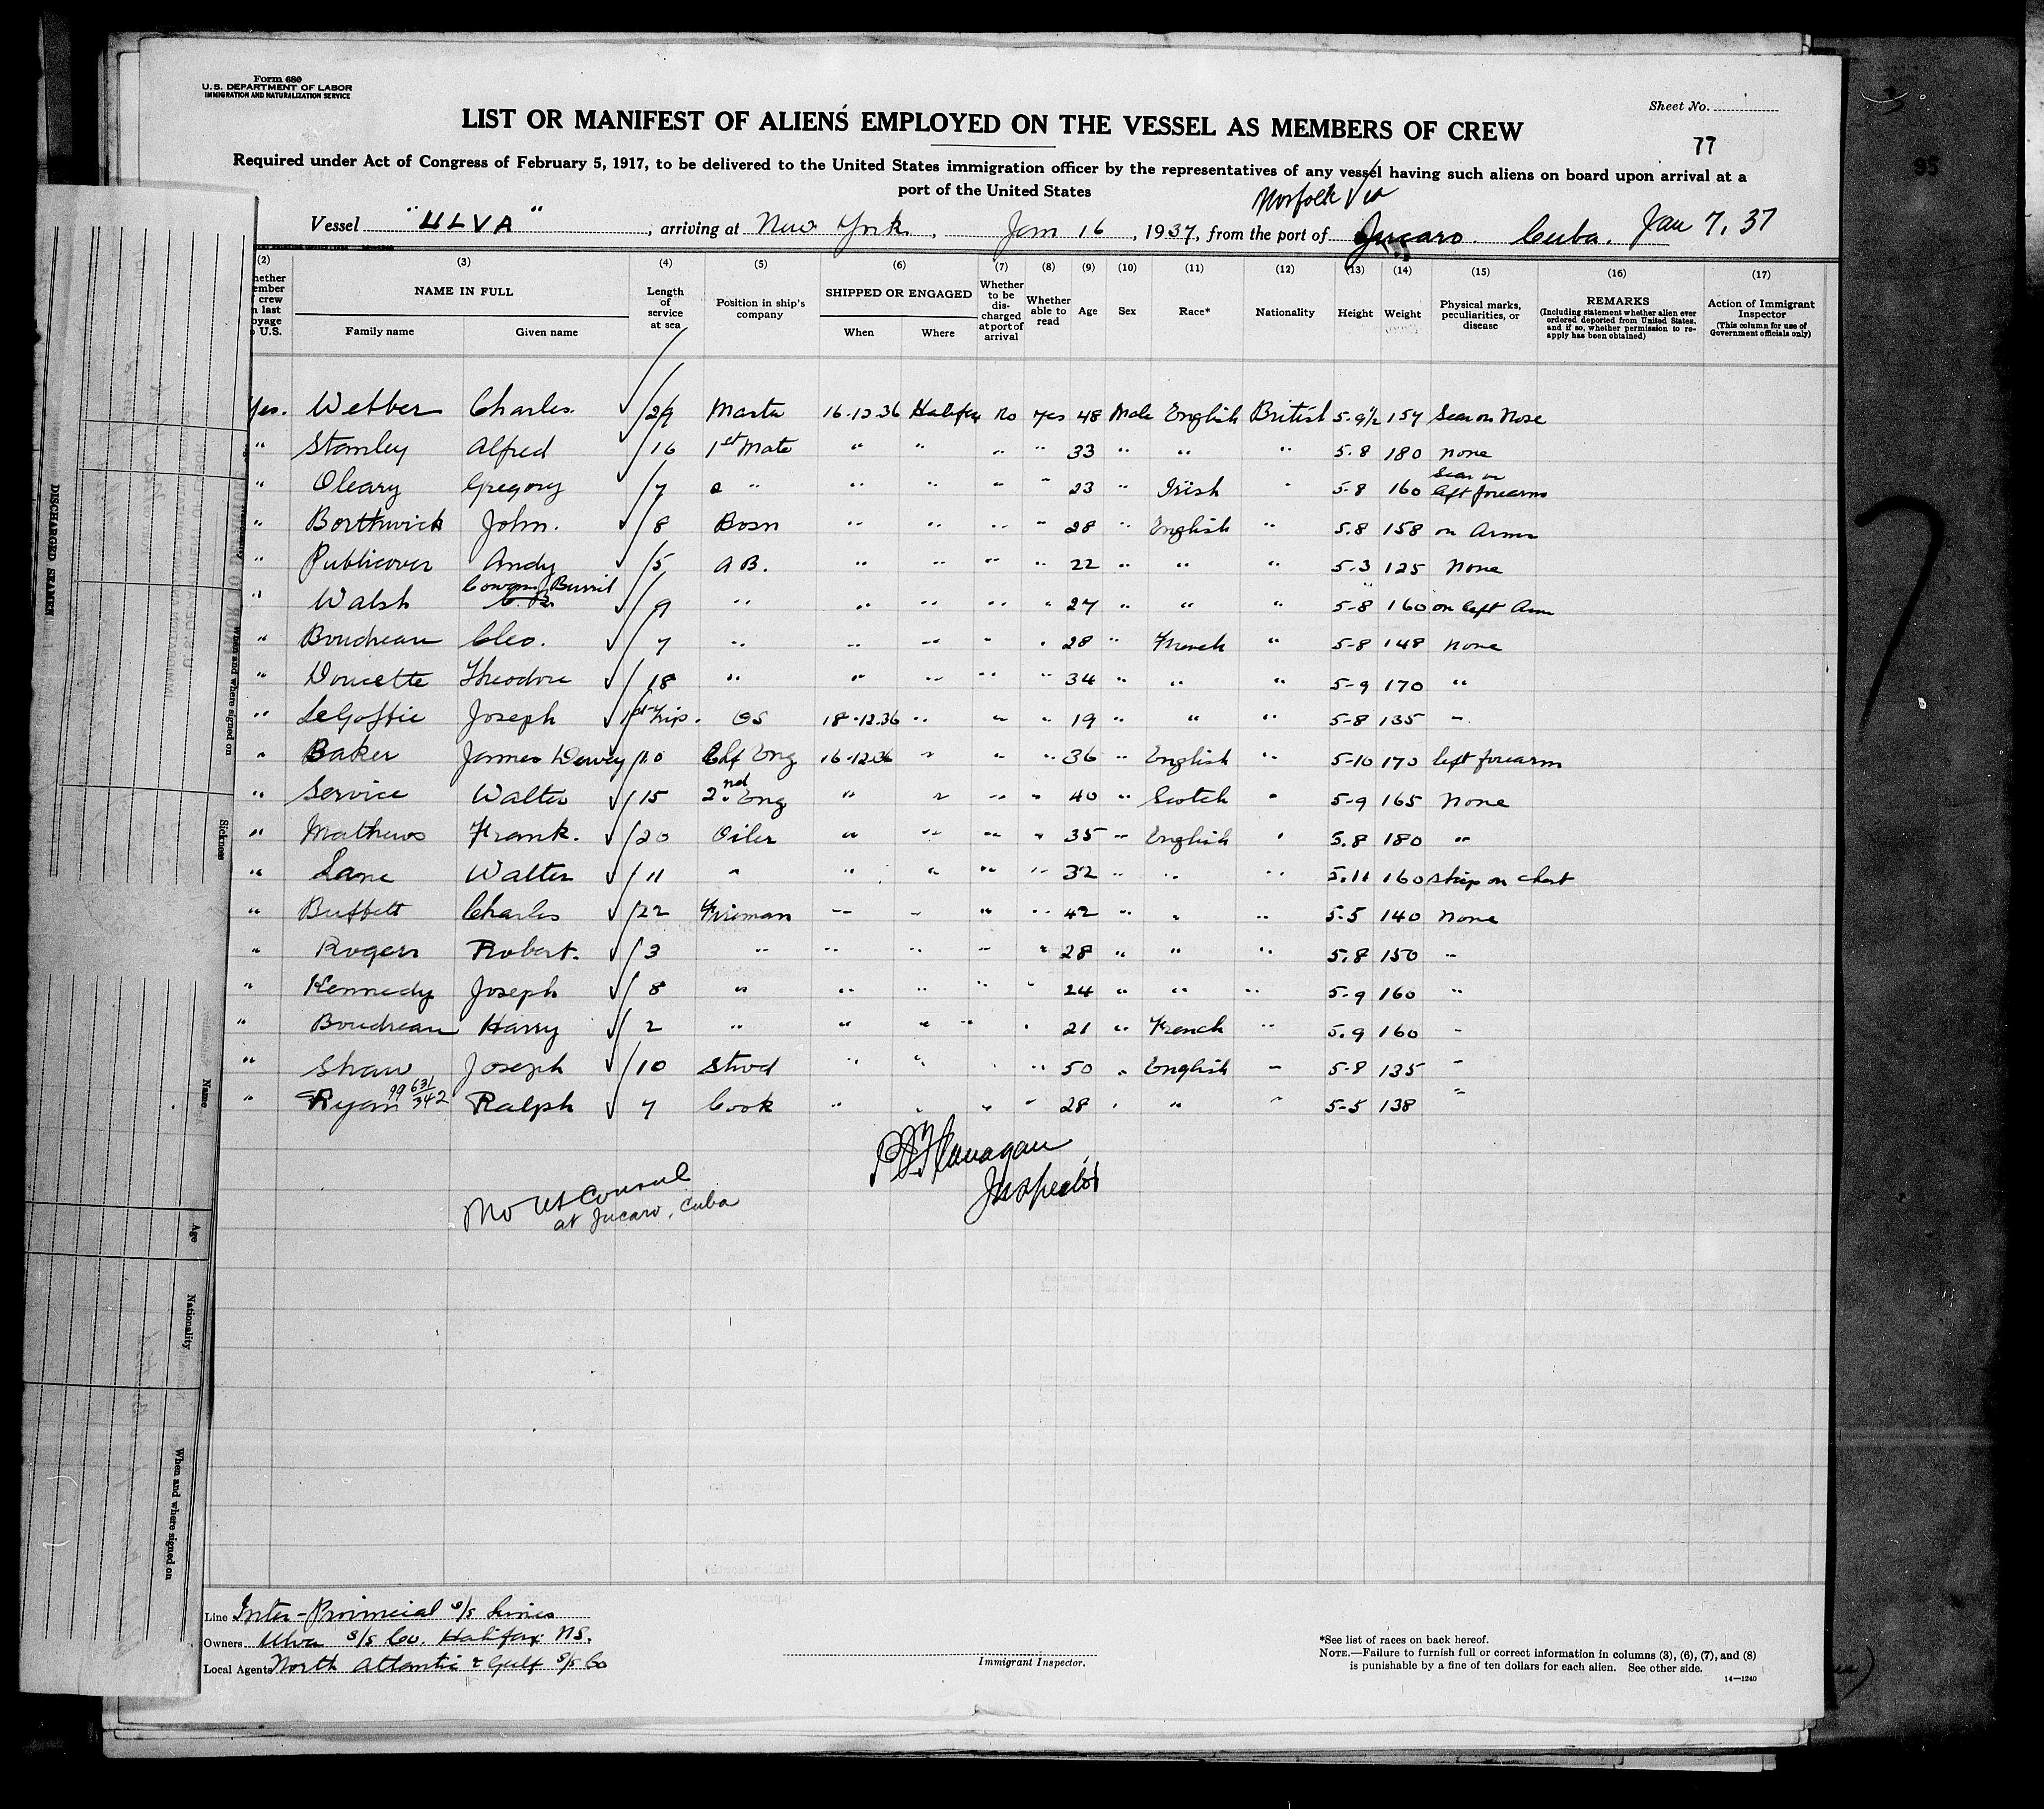 Form 680
U.S. DEPARTMENT OF LABOR
IMMIGRATION AND NATURALIZATION SERVICE
Sheet No.
LIST OR MANIFEST OF ALIENS EMPLOYED ON THE VESSEL AS MEMBERS OF CREW
77
95
Required under Act of Congress of February 5, 1917, to be delivered to the United States immigration officer by the representatives of any vessel having such aliens on board upon arrival at a
port of the United States
Norfolk Va
Vessel "ULVA", arriving at New York, Jan 16, 1937, from the port of Jucaro. Cuba. Jan 7, 37
(2) (3) (4) (5) (6) (7) (8) (9) (10) (11) (12) (13) (14) (15) (16) (17)
NAME IN FULL
Family name Given name
Length of service at sea
Position in ship's company
SHIPPED OR ENGAGED
When Where
Whether to be discharged at port of arrival
Whether able to read
Age
Sex
Race*
Nationality
Height
Weight
Physical marks, peculiarities, or disease
REMARKS
(Including statement whether alien ever ordered deported from United States, and if so, whether permission to reapply has been obtained)
Action of Immigrant Inspector
(This column for use of Government officials only)
Yes. Webber Charles. 29 Master 16-12-36 Halifax no yes 48 Male English British 5-9½ 154 Scar on Nose
" Stanley Alfred 16 1st Mate " " " " 33 " " " 5.8 180 none
" Oleary Gregory 7 2 " " " " " 23 " Irish " 5-8 160 Scar on left forearm
" Borthwick John. 8 Bosn " " " " 28 " English " 5.8 158 on Arms
" Publicover Andy 5 AB. " " " " 22 " " " 5.3 125 None
" Walsh Burril 9 " " " " " 27 " " " 5-8 160 on left Arm
" Boudreau Cleo. 7 " " " " " 28 " French " 5-8 148 none
" Doucette Theodore 18 " " " " " 34 " " " 5-9 170 "
" LeGoffic Joseph 1st trip. OS 18-12-36 " " " 19 " " " 5-8 135 "
" Baker James Dewey 10 Chf Eng 16-12-36 " " " 36 " English " 5-10 170 left forearm
" Service Walter 15 2nd Eng " " " " 40 " Scotch " 5-9 165 None
" Mathews Frank. 20 Oiler " " " " 35 " English " 5.8 180 "
" Lane Walter 11 " " " " " 32 " " " 5.11 160 on chest
" Buffett Charles 22 Fireman " " " " 42 " " " 5-5 140 none
" Rogers Robert. 3 " " " " " 28 " " " 5.8 150 "
" Kennedy Joseph 8 " " " " " 24 " " " 5-9 160 "
" Boudreau Harry 2 " " " " " 21 " French " 5.9 160 "
" Shaw Joseph 10 Stwd " " " " 50 " English " 5-8 135 "
" Ryan 99 631/342 Ralph 7 Cook " " " " 28 " " " 5-5 138 "
Flanagan
Inspector
No US Consul
at Jucaro, Cuba
DISCHARGED SEAMEN
When and where signed on
Sickness
Name
Age
Nationality
When and where signed on
Line Inter-Provincial S/S Lines
Owners Ulva S/S Co. Halifax NS.
Local Agents North Atlantic & Gulf S/S Co
Immigrant Inspector.
*See list of races on back hereof.
NOTE.—Failure to furnish full or correct information in columns (3), (6), (7), and (8)
is punishable by a fine of ten dollars for each alien. See other side.
14—1240